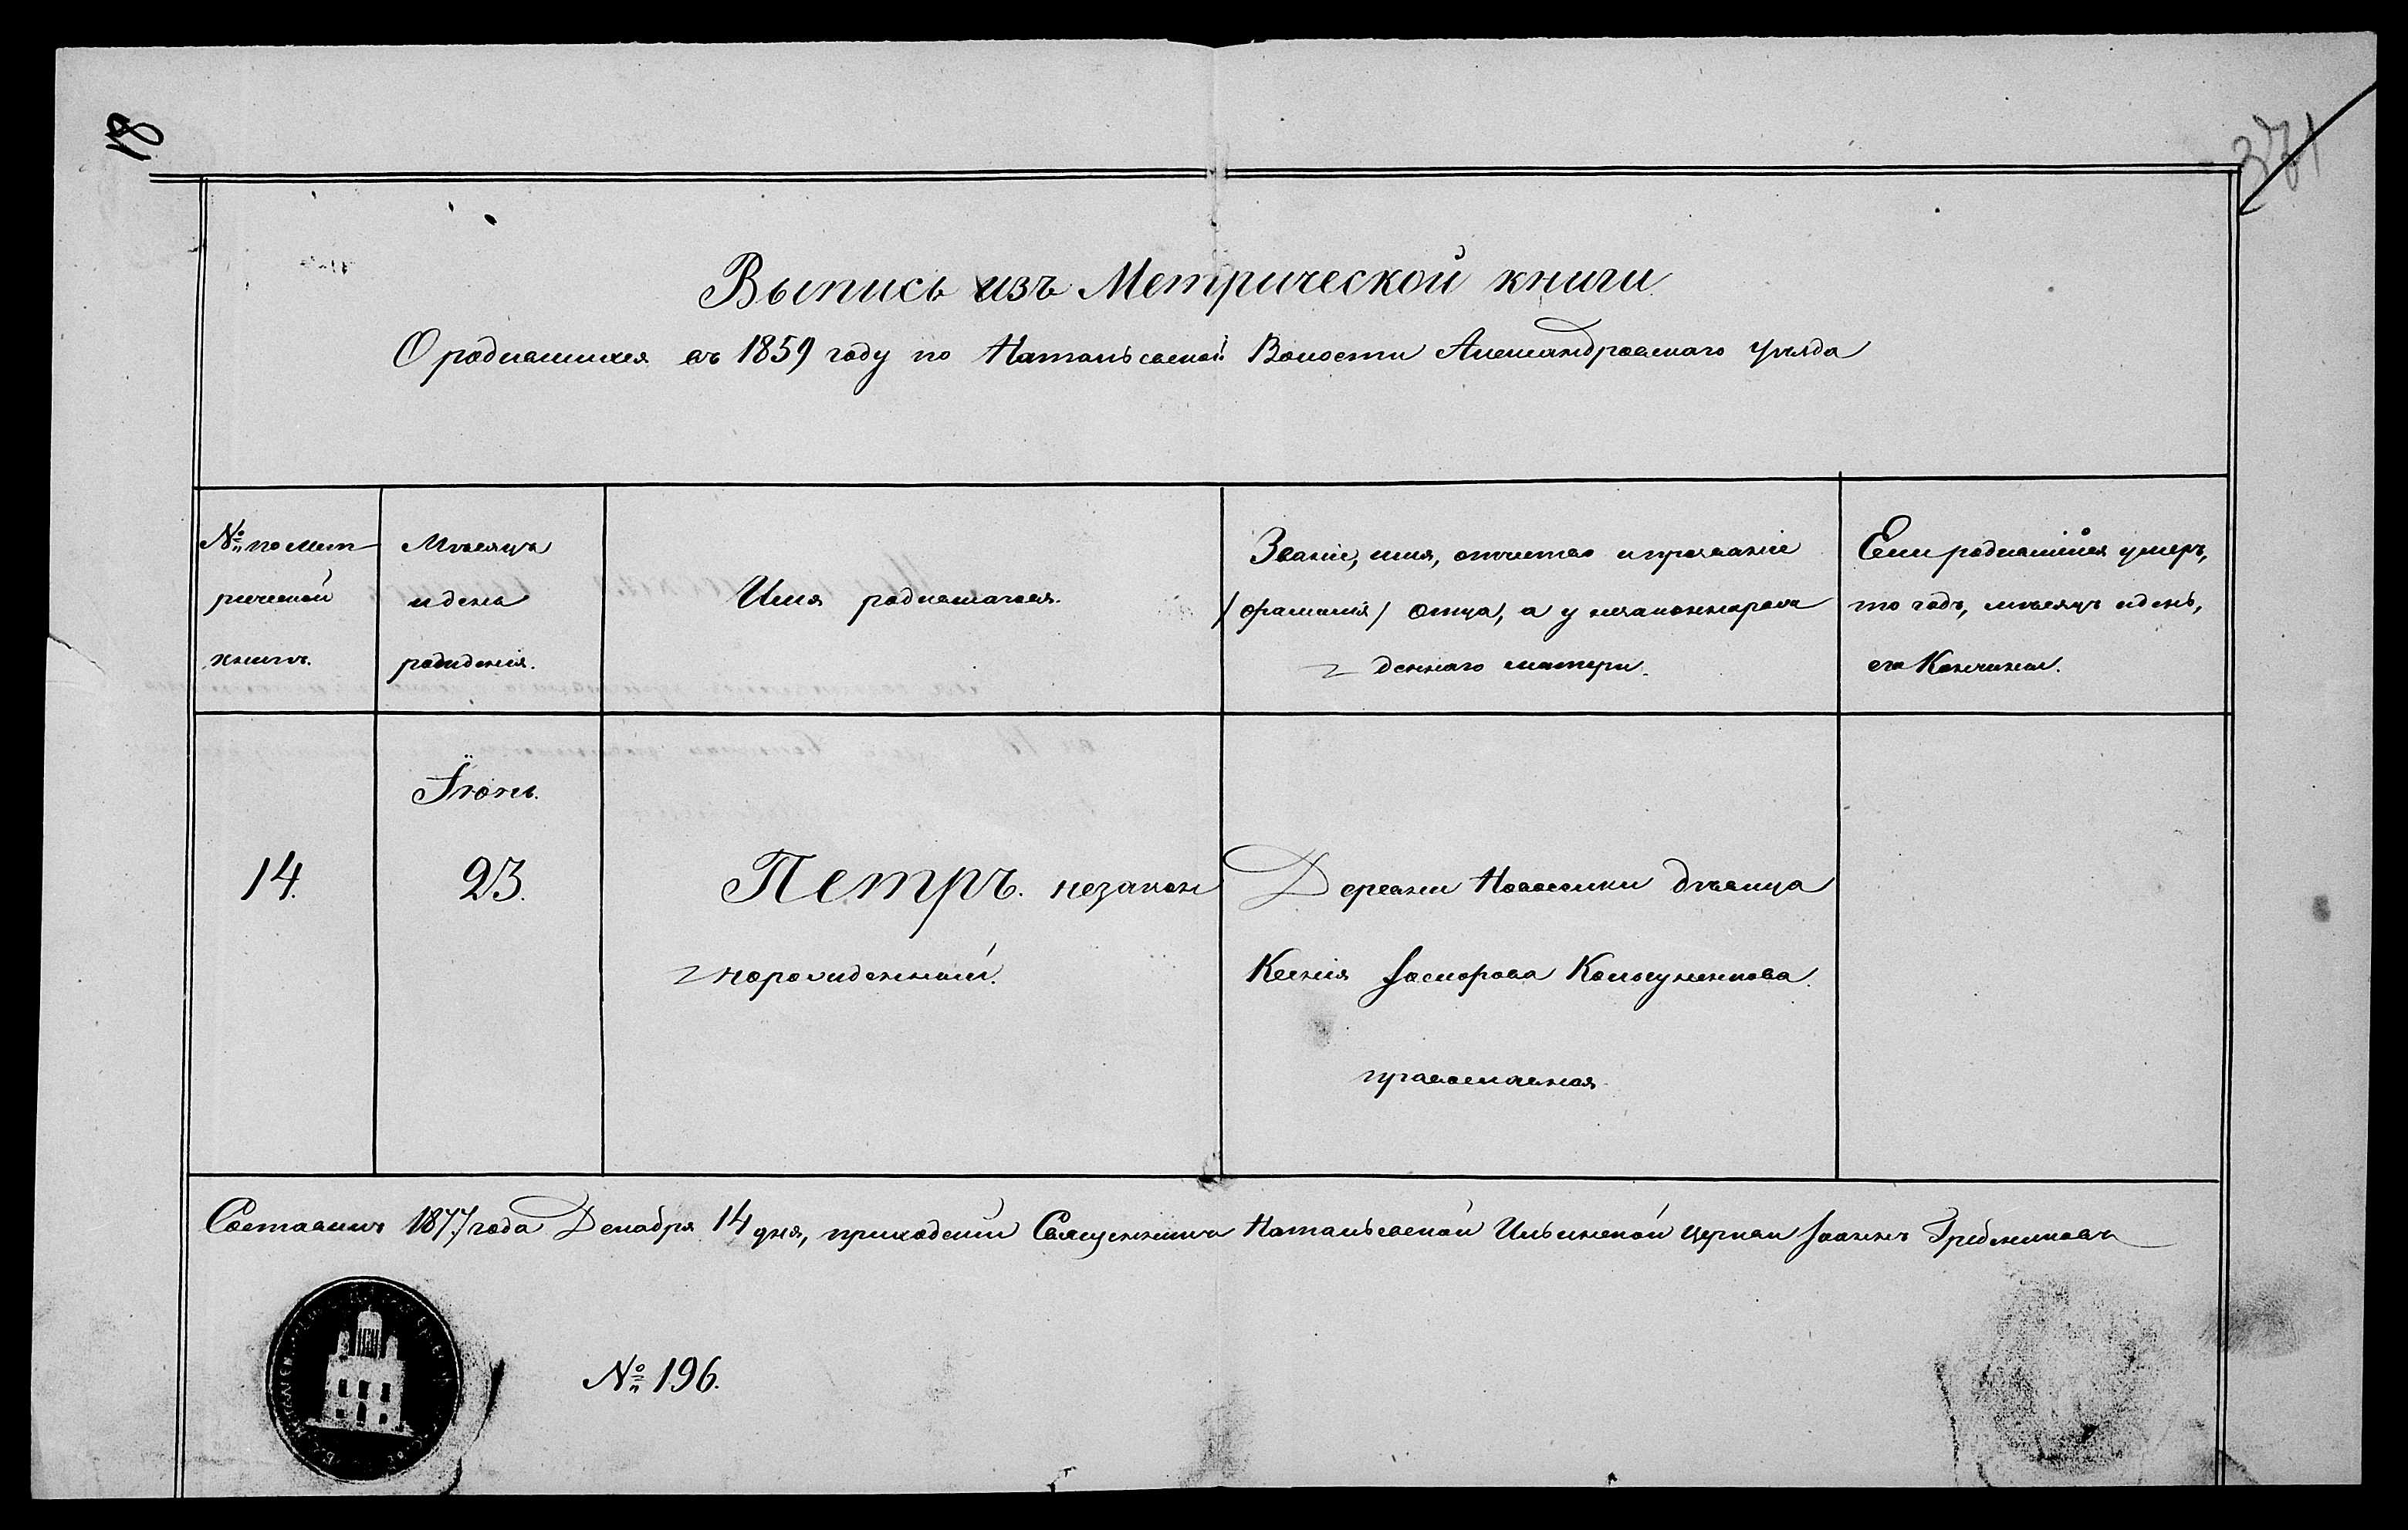 18
371
Выпись изъ Метрической книги
О родившихся въ 1859 году по Натальевской Волости Александровскаго уѣзда
№ по мет-
рической
книгѣ.
Мѣсяцъ
и день
рожденія.
Имя родившагося.
Званіе, имя, отчество и прозваніе
/фамилія/ Отца, а у незаконнорож
денного матери.
Если родившійся умеръ,
то годъ, мѣсяцъ и день,
его Кончины.
14.
Іюнь.
23.
Петръ. незакон
норожденный.
Деревни Новоселки дѣвица
Ксенія
православная
Составилъ 1877 года Декабря 14 дня, приходскій Священникъ Натальевской Ильинской церкви Іоаннъ Гребенниковъ
№ 196.